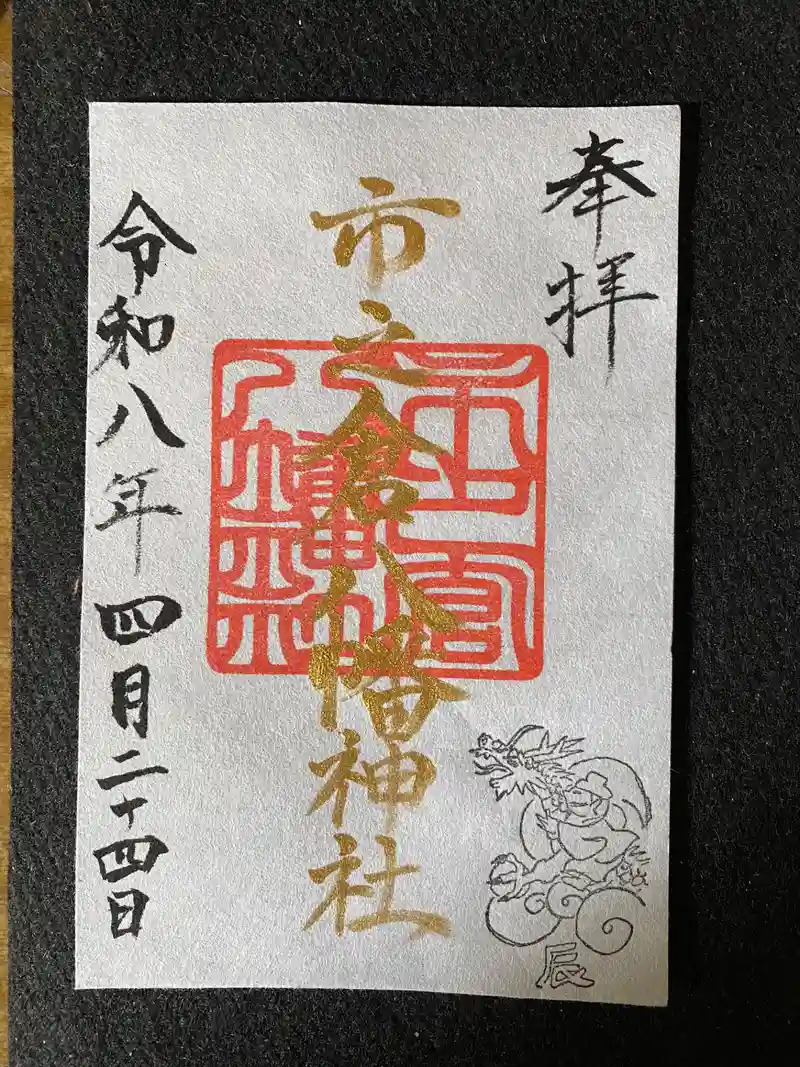 奉拝
市之倉八幡神社
令和八年四月二十四日
辰